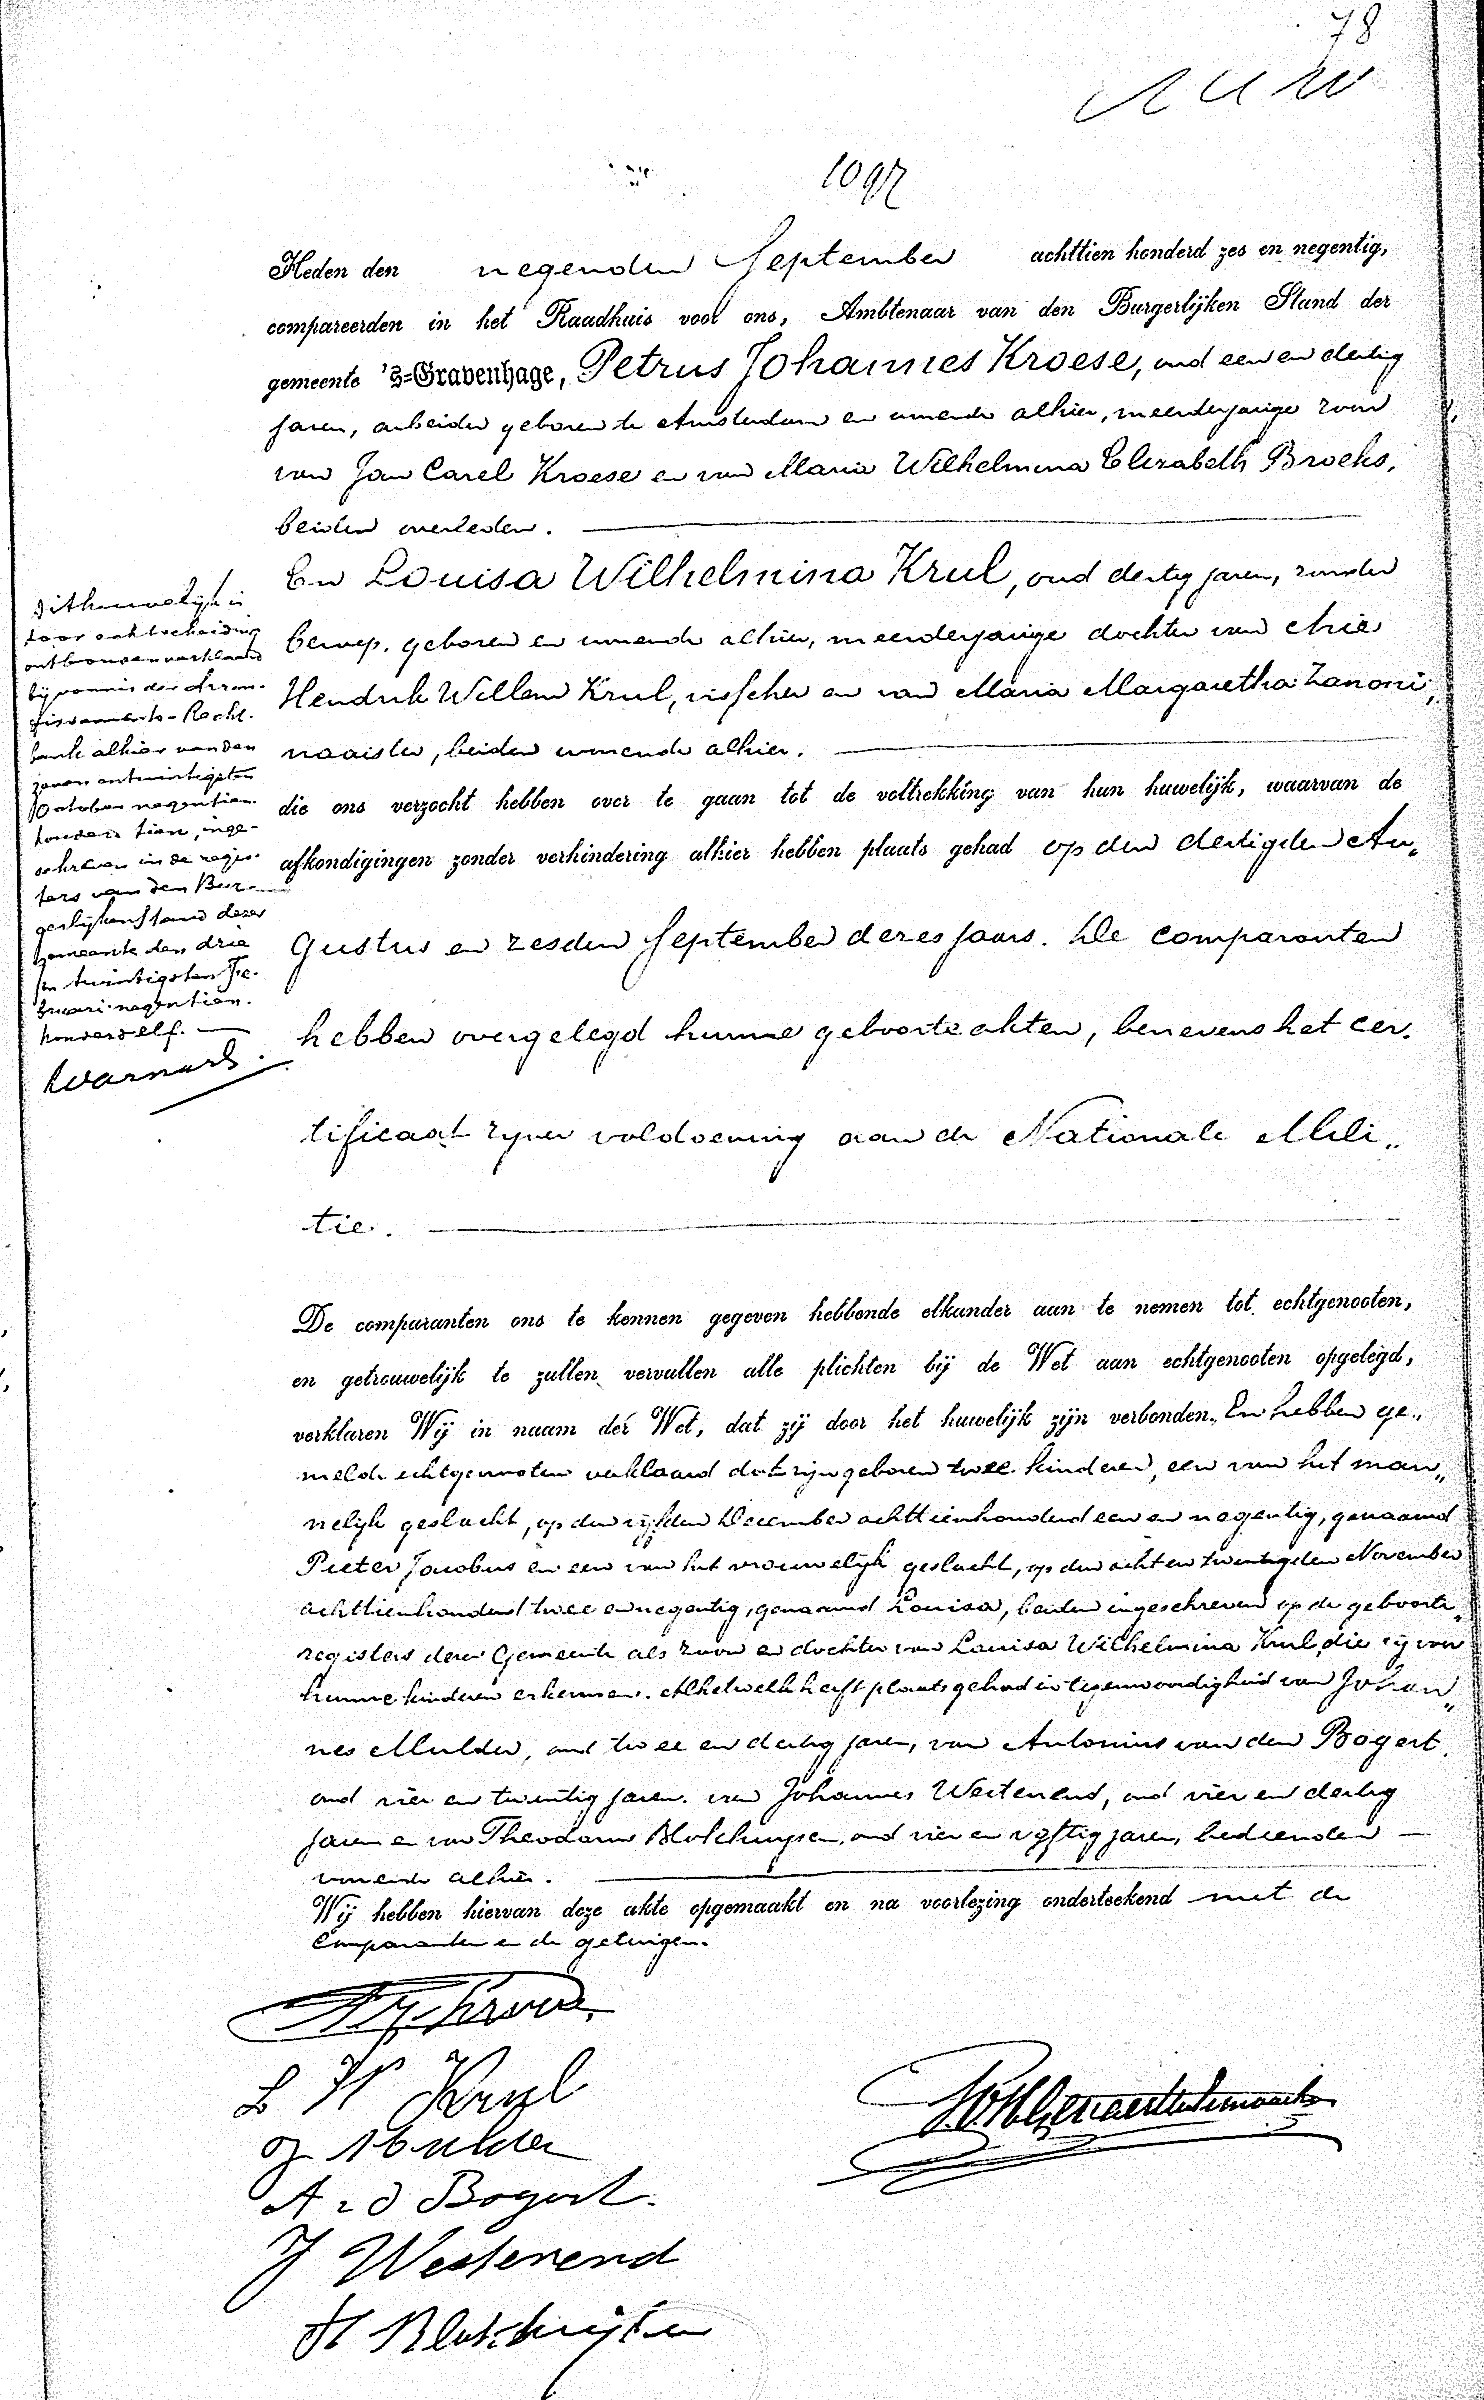 78
1097
Heden den negenden September achttien honderd zes en negentig,
compareerden in het Raadhuis voor ons, Ambtenaar van den Burgerlijken Stand der
gemeente 's-Gravenhage, Petrus Johannes Kroese, oud een en dertig
jaren, arbeider geboren te Amsterdam en wonende alhier, meerderjarige zoon
van Jan Carel Kroese en van Maria Wilhelmina Elizabeth Broeks,
beiden overleden.
En Louisa Wilhelmina Krul, oud dertig jaren, zonder
beroep, geboren en wonende alhier, meerderjarige dochter van Arie
Hendrik Willem Krul, visscher en van Maria Margaretha Zanoni,
naaister, beiden wonende alhier.
die ons verzocht hebben over te gaan tot de voltrekking van hun huwelijk, waarvan de
afkondigingen zonder verhindering alhier hebben plaats gehad op den dertigsten Au„
gustus en zesden September dezes jaars. De comparanten
hebben overgelegd hunne geboorteakten, benevens het cer„
tificaat zijner voldoening aan de Nationale Mili„
tie.
De comparanten ons te kennen gegeven hebbende elkander aan te nemen tot echtgenooten,
en getrouwelijk te zullen vervullen alle plichten bij de Wet aan echtgenooten opgelegd,
verklaren Wij in naam der Wet, dat zij door het huwelijk zijn verbonden. En hebben ge„
melde echtgenooten verklaard dat zijn geboren twee kinderen, een van het man„
nelijk geslacht, op den vijfden December achttienhonderd een en negentig, genaamd
Pieter Jacobus en een van het vrouwelijk geslacht, op den acht en twintigsten November
achttienhonderd twee en negentig, genaamd Louisa, beiden ingeschreven op de geboorte„
registers dezer Gemeente als zoon en dochter van Louisa Wilhelmina Krul, die zij voor
hunne kinderen erkennen. Alhetwelk heeft plaats gehad in tegenwoordigheid van Johan„
nes Mulder, oud twee en dertig jaren, van Antonius van den Bogert,
oud vier en twintig jaren, van Johannes Westenend, oud vier en dertig
jaren en van Theodorus Blotenhuijsen, oud vier en vijftig jaren, bedienden
wonende alhier.
Wij hebben hiervan deze akte opgemaakt en na voorlezing onderteekend met de
Comparanten en de getuigen.
Dit huwelijk is
door echtscheiding
ontbonden verklaard
bij vonnis der Arron-
dissements-Recht-
bank alhier van den
zeven en twintigsten
October negentien
honderd tien, inge-
schreven in de regis-
ters van den Bur-
gerlijken stand dezer
gemeente den drie
en twintigsten Fe-
bruari negentien-
honderd elf.
P. J. Kroese
L W Krul
J Mulder
A v d Bogert
J Westenend